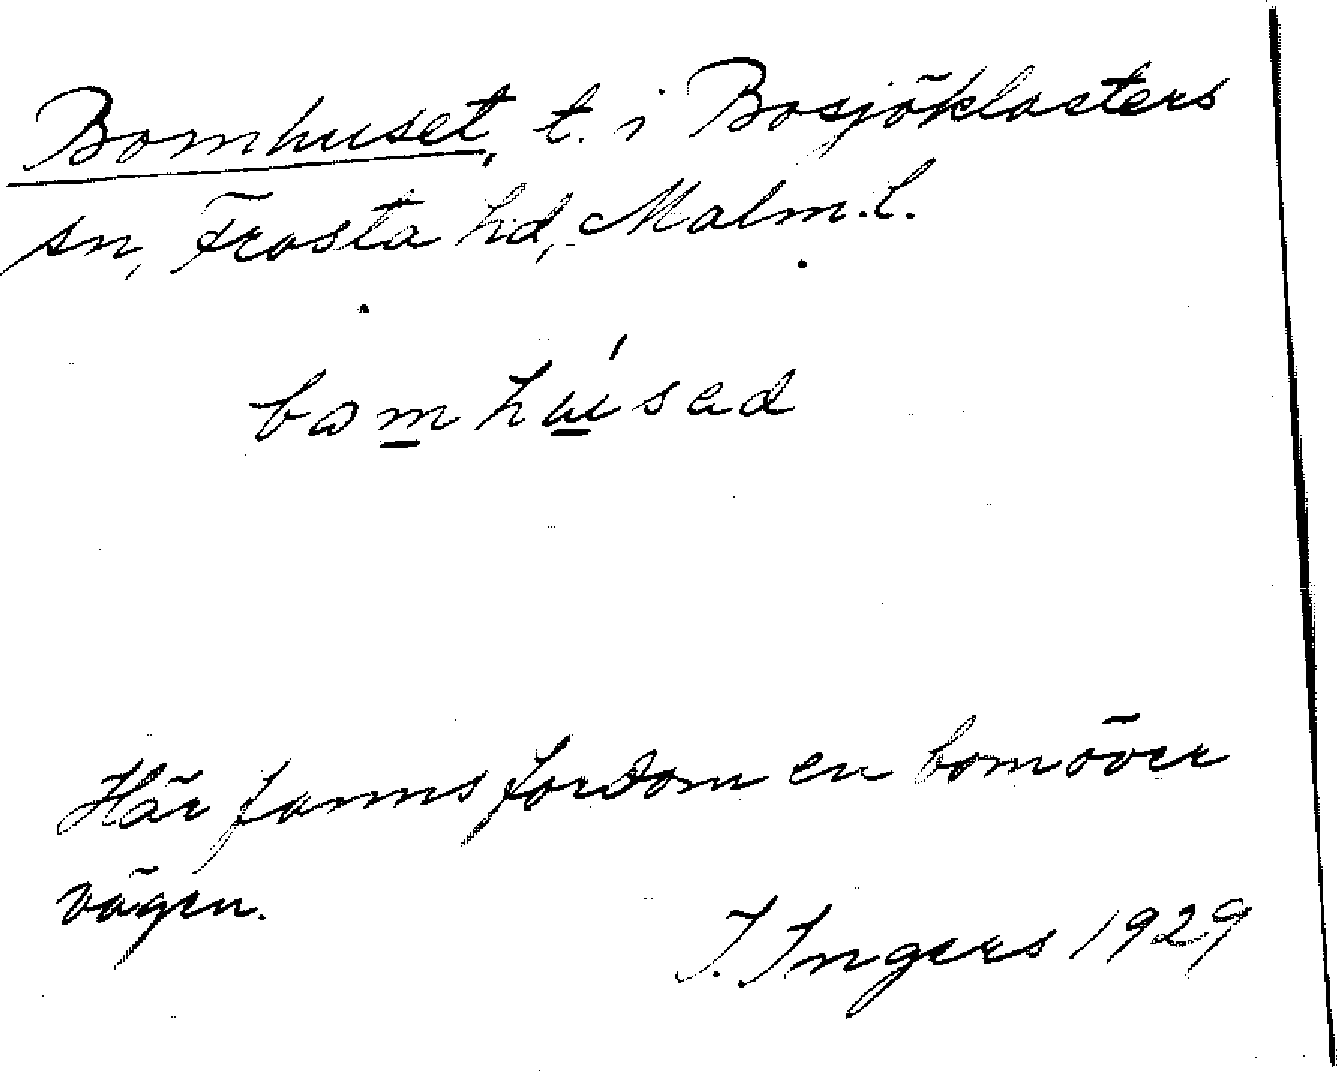 Bomhuset, t. i Bosjöklosters
sn, Frosta hd, Malm. l.
Här fanns fordom en bom över
vägen.
I. Ingers 1929